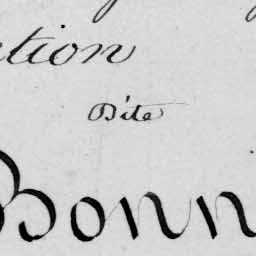 ction
Dite
Bonn